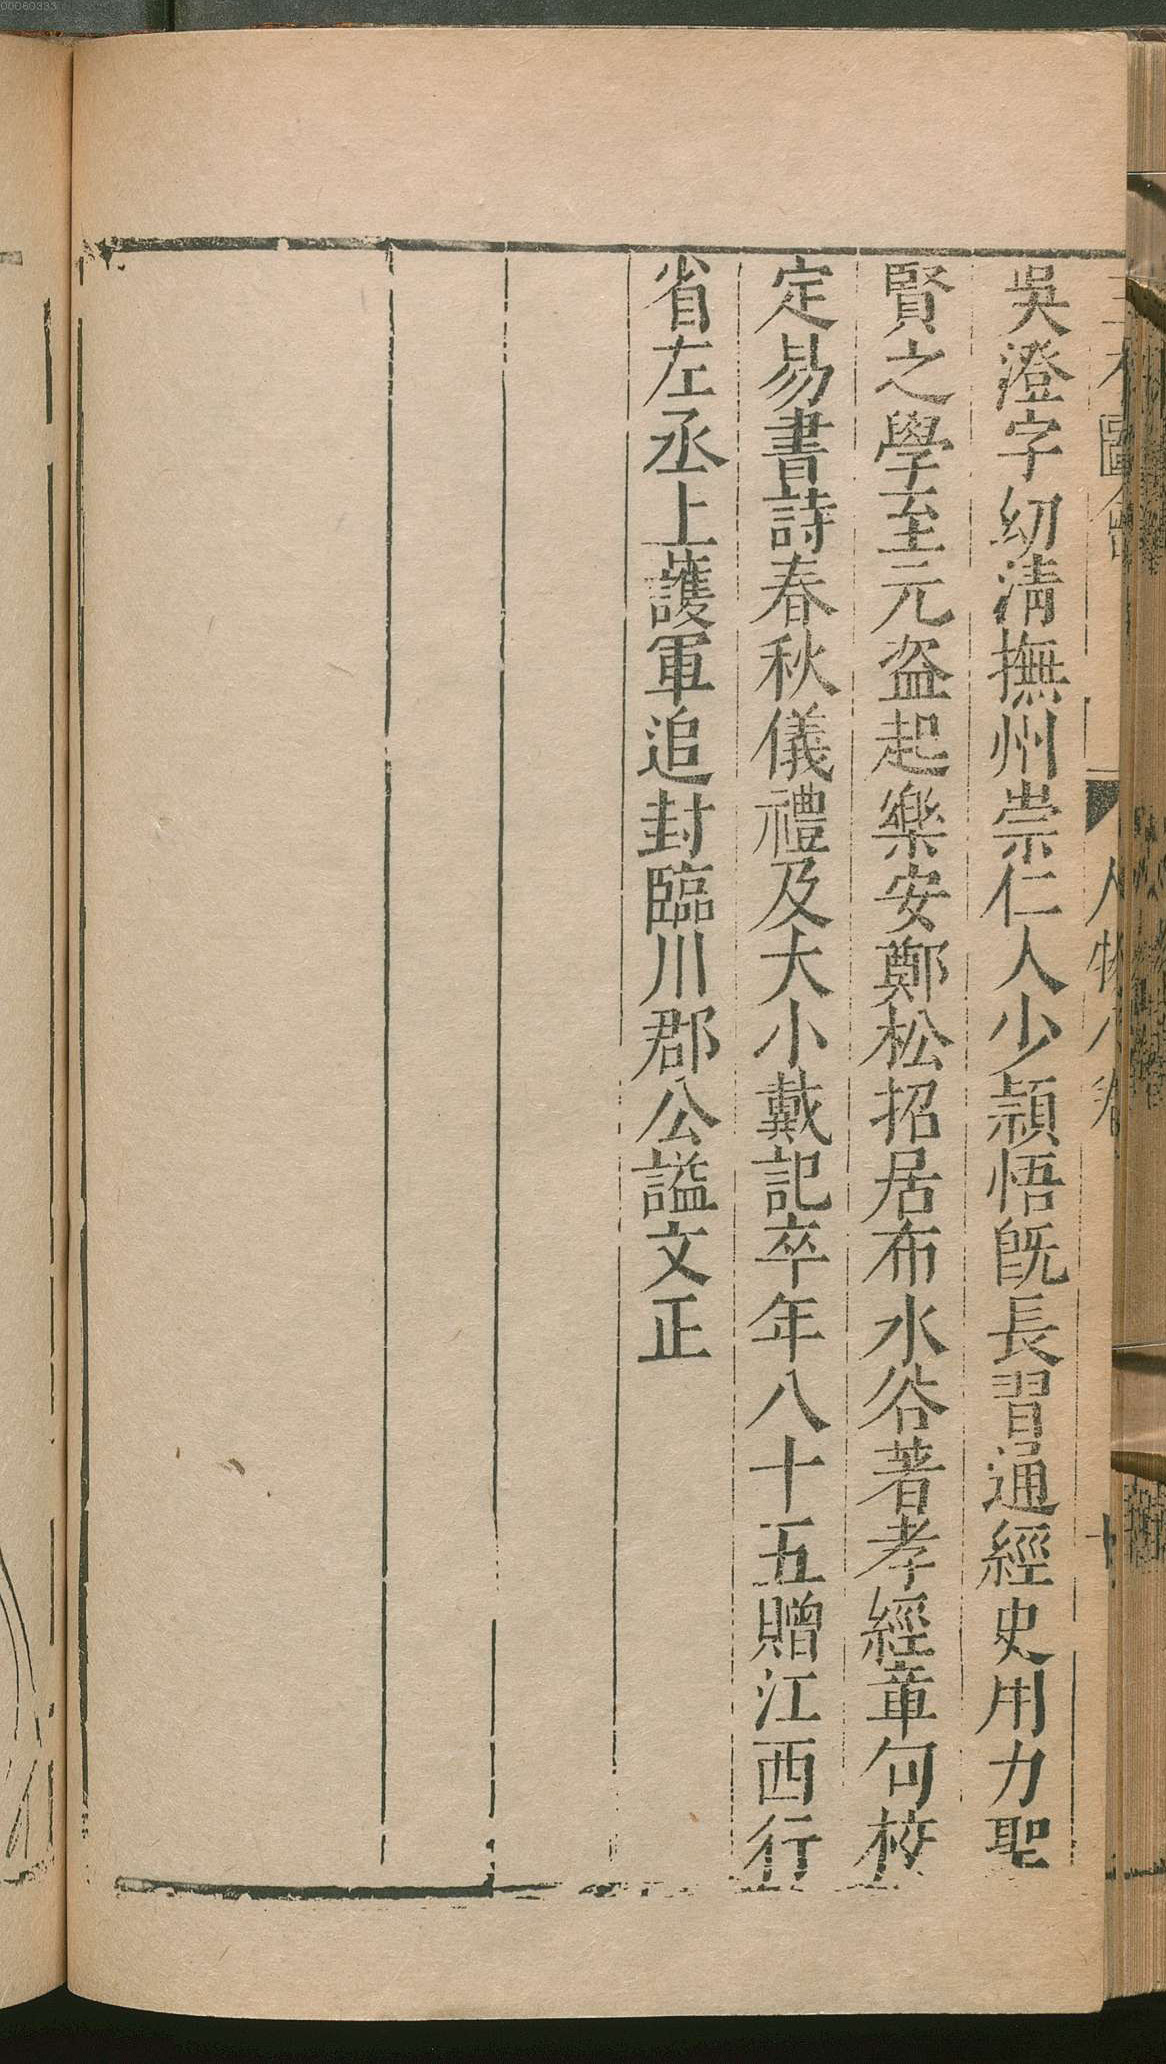 吳澄字幼清撫州崇仁人少穎悟旣長習通經史用力聖
賢之學至元盜起樂安鄭松招居布水谷著孝經章句校
定易書詩春秋儀禮及大小戴記卒年八十五贈江西行
省左丞上護軍追封臨川郡公謚文正
00060333